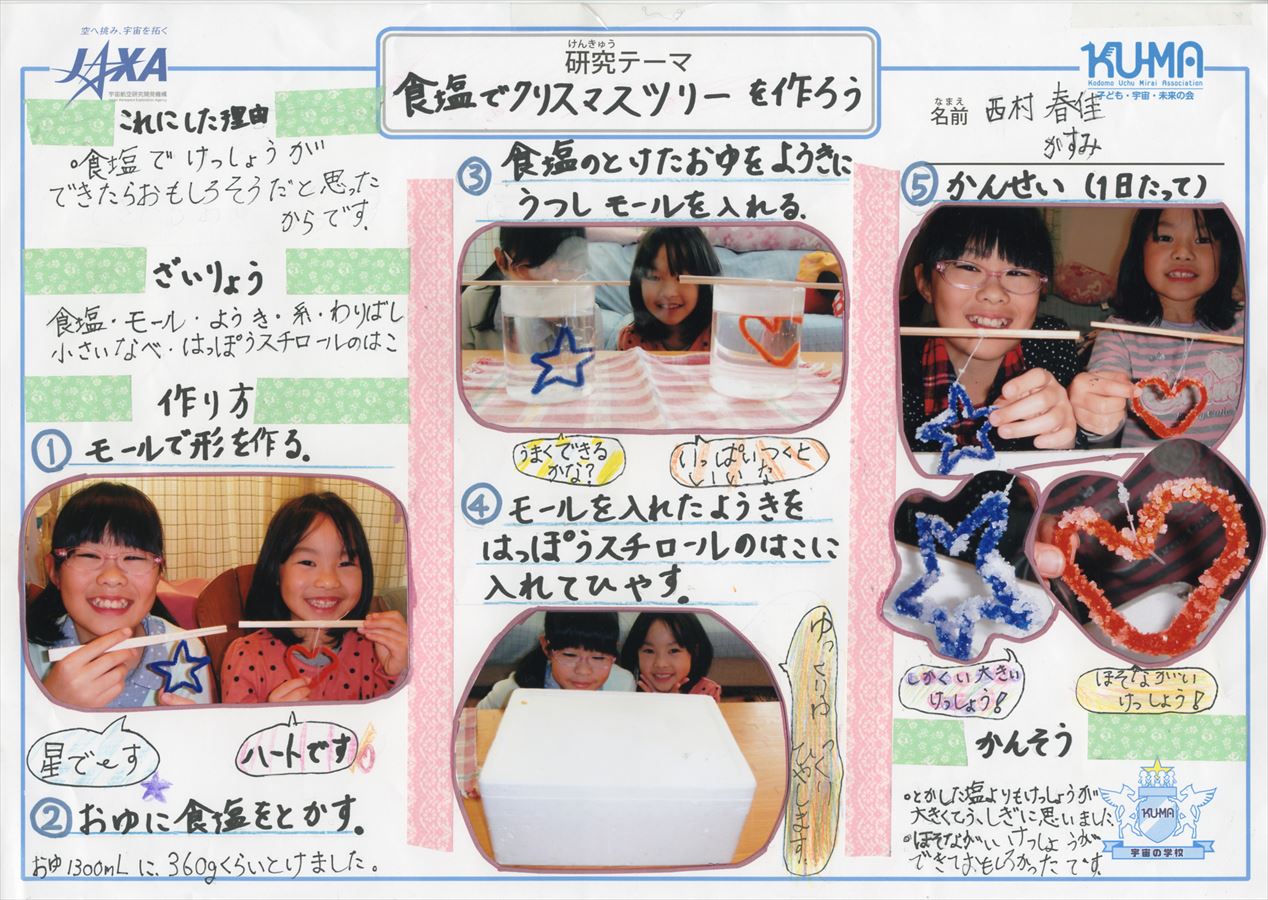 空へ挑み、宇宙を拓く
JAXA
宇宙航空研究開発機構
Japan Aerospace Exploration Agency
けんきゅう
研究テーマ
食塩でクリスマスツリーを作ろう
KU-MA
Kodomo Uchu Mirai Association
子ども・宇宙・未来の会
なまえ
名前 西村 春佳
がすみ
これにした理由
・食塩でけっしょうが
できたらおもしろそうだと思った
からです。
ざいりょう
食塩・モール・ようき・糸・わりばし
小さいなべ・はっぽうスチロールのはこ
作り方
①モールで形を作る。
星でーす
ハートです
②おゆに食塩をとかす。
おゆ1300mLに、360gくらいとけました。
③食塩のとけたおゆをようきに
うつしモールを入れる。
うまくできる
かな?
いっぱいつくと
いいな
④モールを入れたようきを
はっぽうスチロールのはこに
入れてひやす。
ゆっくりゆっくり
ひやします。
⑤かんせい(1日たって)
しかくい大きい
けっしょう!
ほそながい
けっしょう!
かんそう
・とかした塩よりもけっしょうが
大きくてふしぎに思いました
・ほそながいけっしょうが
できておもしろかったです。
KUMA
宇宙の学校